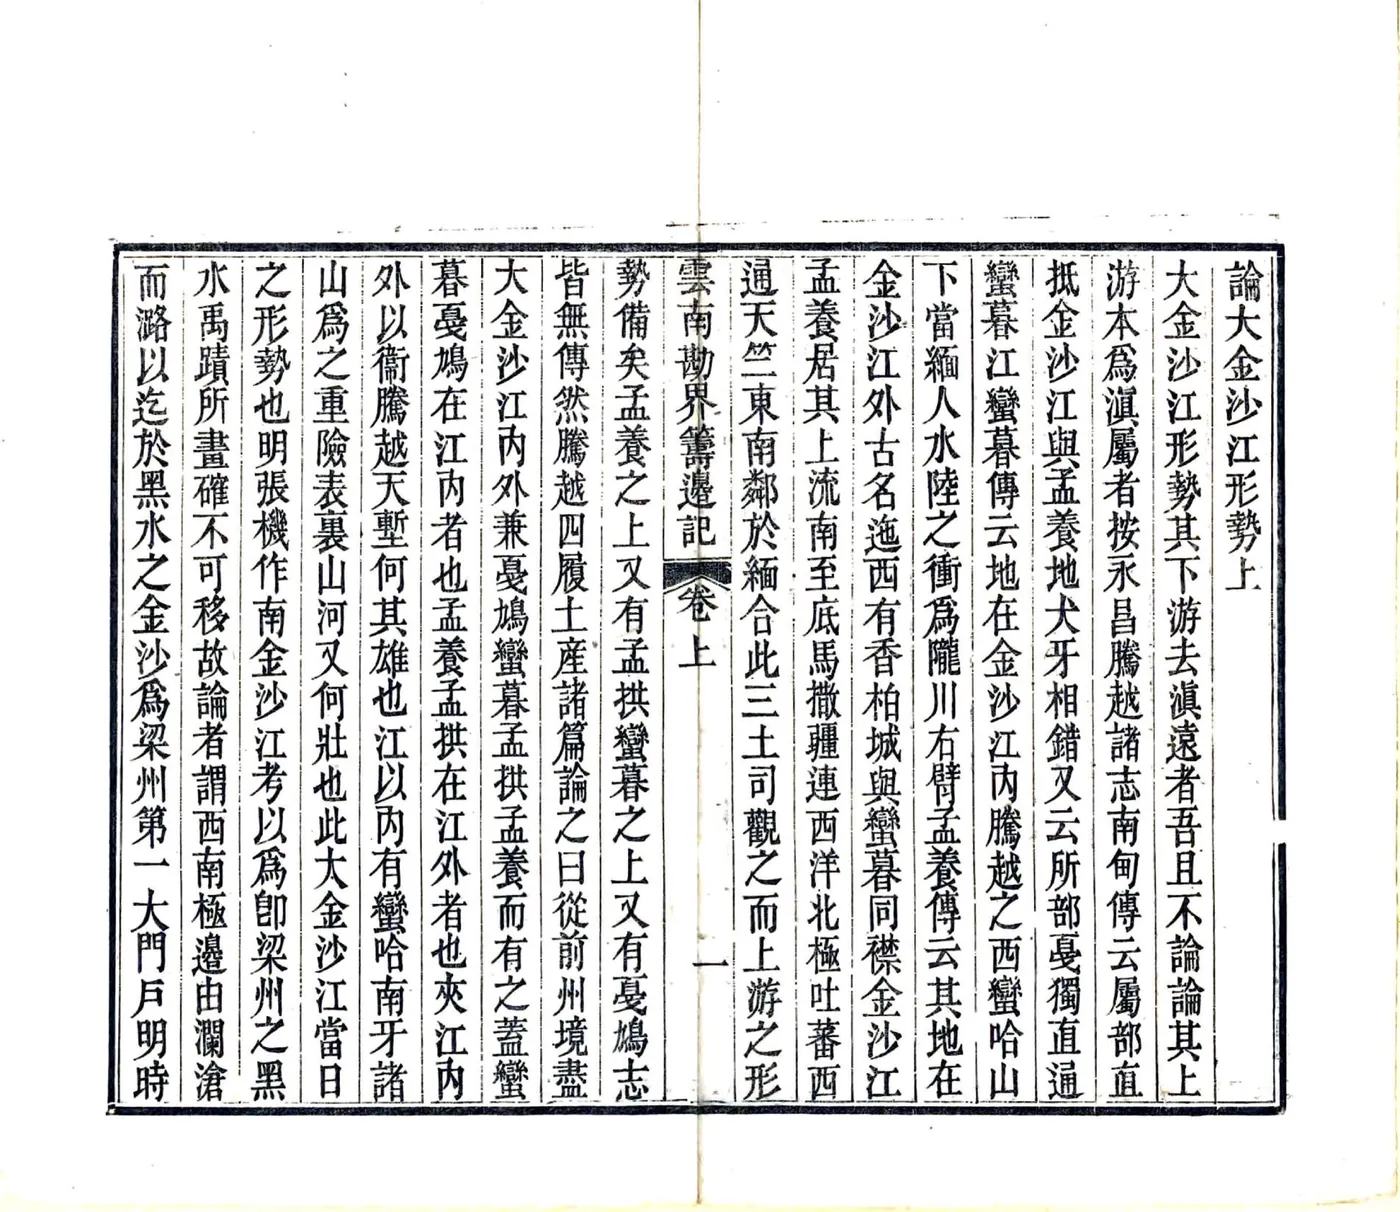 論大金沙江形勢上
大金沙江形勢其下游去滇遠者吾且不論論其上
游本爲滇屬者按永昌騰越諸志南甸傳云屬部直
抵金沙江與孟養地犬牙相錯又云所部戞獨直通
蠻暮江蠻暮傳云地在金沙江內騰越之西蠻哈山
下當緬人水陸之衝爲隴川右臂孟養傳云其地在
金沙江外古名迤西有香柏城與蠻暮同襟金沙江
孟養居其上流南至底馬撒疆連西洋北極吐蕃西
通天竺東南鄰於緬合此三土司觀之而上游之形
雲南勘界籌邊記 卷上 一
勢備矣孟養之上又有孟拱蠻暮之上又有戞鳩志
皆無傳然騰越四履土産諸篇論之曰從前州境盡
大金沙江內外兼戞鳩蠻暮孟拱孟養而有之蓋蠻
暮戞鳩在江內者也孟養孟拱在江外者也夾江內
外以衞騰越天塹何其雄也江以內有蠻哈南牙諸
山爲之重險表裏山河又何壯也此大金沙江當日
之形勢也明張機作南金沙江考以爲卽梁州之黑
水禹蹟所畫確不可移故論者謂西南極邊由瀾滄
而潞以迄於黑水之金沙爲梁州第一大門戶明時